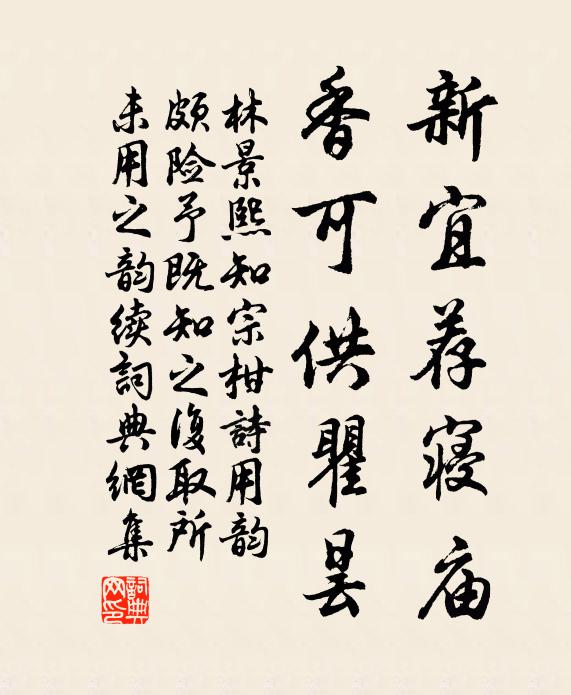 新宜荐寝庙
香可供瞿昙
林景熙知宗柑詩用韵
颇险予既知之復取所
未用之韵续詞典網集
詞典网印